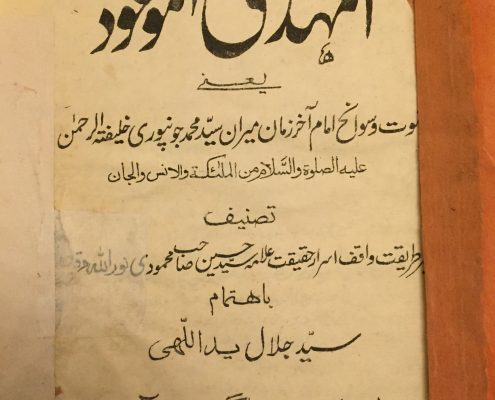 المہدی الموعود
یعنی
ثبوت و سوانح امام آخر زمان میراں سید محمد جونپوری خلیفتہ الرحمٰن
علیہ الصلوٰۃ والسَّلام من الملٰئکۃ والانس والجان
تصنیف
طریقت واقف اسرار حقیقت علامہ سید حسین صاحب محمودی نور اللہ
باھتمام
سیّد جلال یداللّٰہی